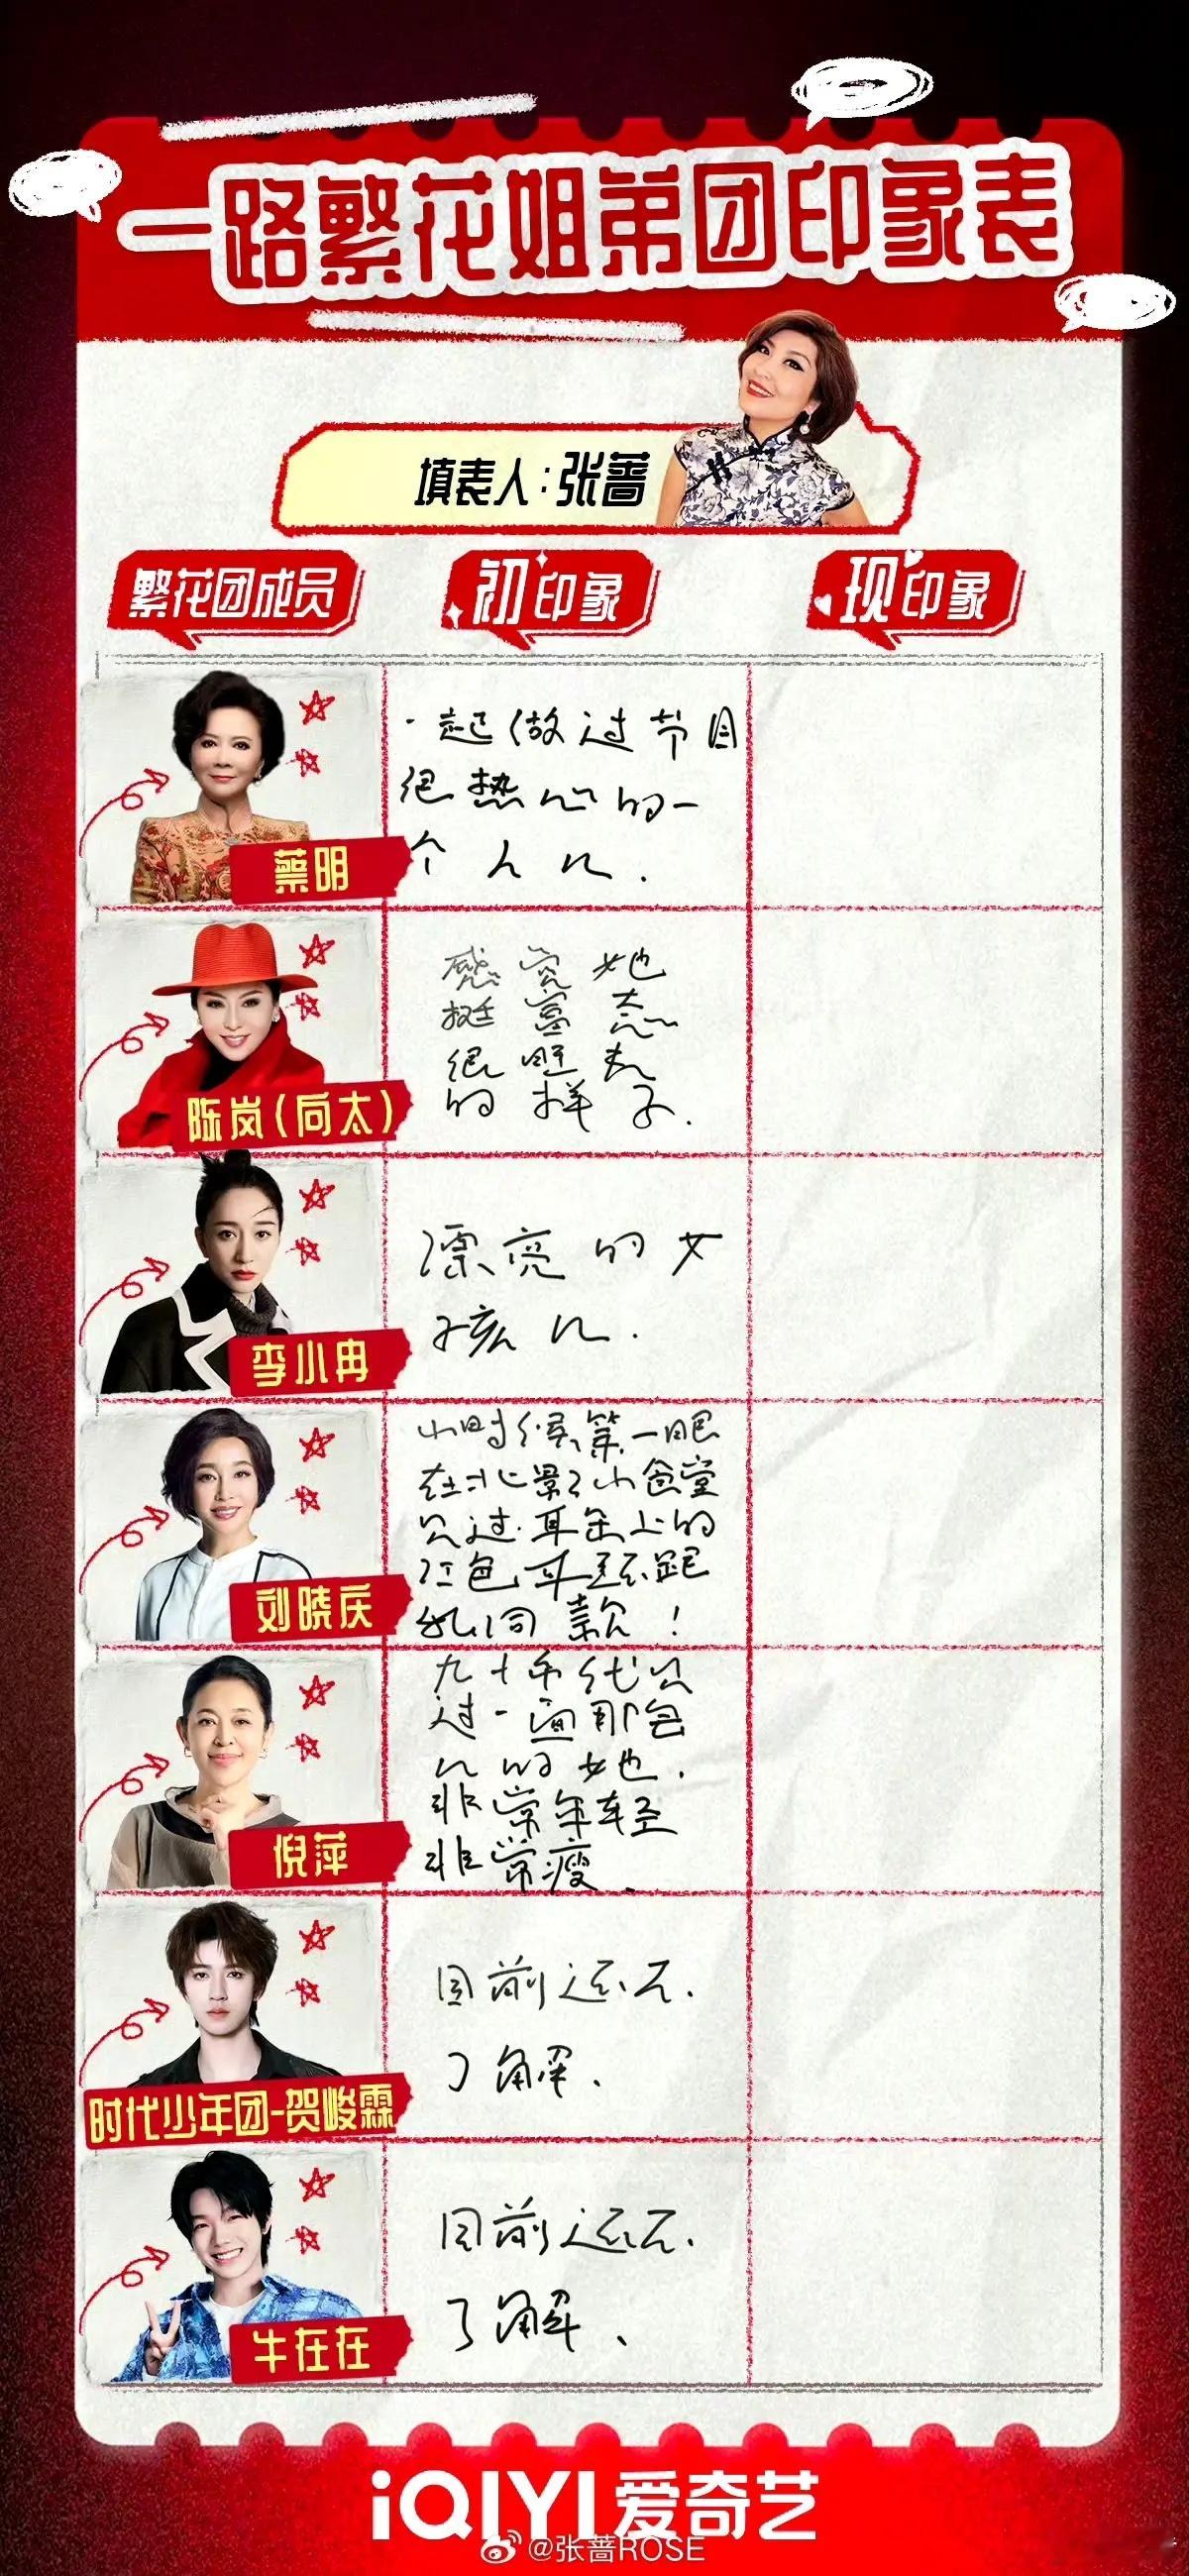 一路繁花姐弟团印象表
填表人：张蔷
繁花团成员
初印象
现印象
蔡明
一起做过节目
很热心的一
个人儿.
陈岚（向太）
感觉她
挺富态
很旺夫
的样子.
李小冉
漂亮的女
孩儿.
刘晓庆
小时候第一眼
在北影小食堂
见过.耳朵上的
红色耳环跟
我同款！
倪萍
九十年代见
过一面那会
儿的她.
非常年轻
非常瘦.
时代少年团-贺峻霖
目前还不.
了解.
牛在在
目前还不.
了解、
iQIYI 爱奇艺
@张蔷ROSE